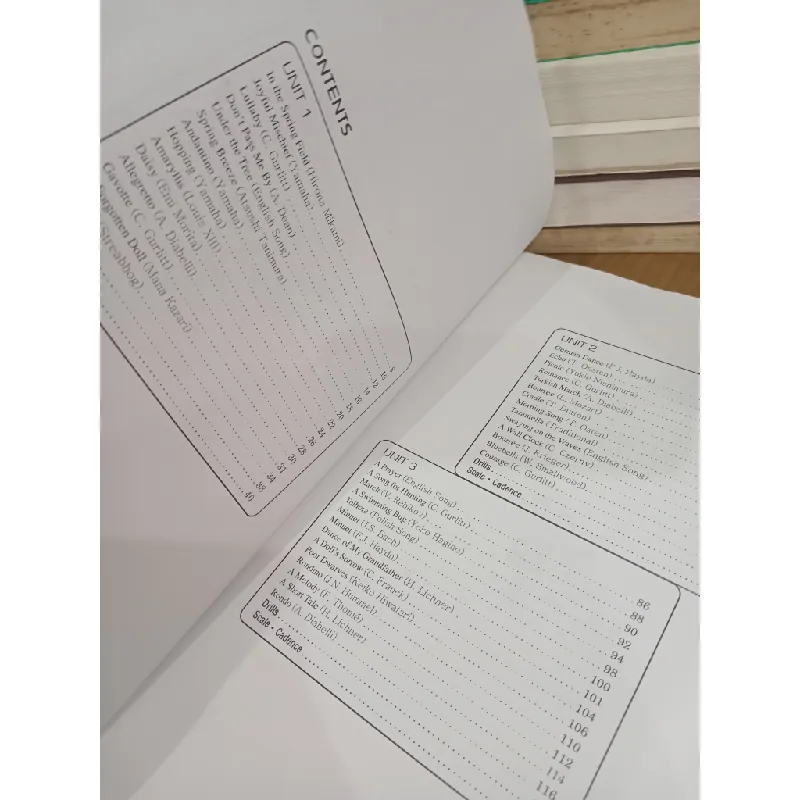 CONTENTS
UNIT 1
In the Spring Field (Hirona Mikami)
Joyful Mischief (Yamaha)
Lullaby (C. Gurlitt)
Don't Pass Me By (A. Dean)
Under the Tree (English Song)
Spring Breeze (Atsushi Tanimura)
Andantino (Yamaha)
Hopping (Yamaha)
Amaryllis (Louis XIII)
Daisy (Emi Morita)
Allegretto (A. Diabelli)
Gavotte (C. Gurlitt)
Forgotten Doll (Mana Kazari)
(Streabbog)
8
10
12
14
16
18
20
22
24
26
28
30
31
34
38
40
UNIT 2
German Dance (F.J. Haydn)
Echo (T. Oesten)
Romance (C. Gurlitt)
Turkish March (A. Diabelli)
Bourree (L. Mozart)
Morning Song (T. Oesten)
Tarantella (Traditional)
Swaying on the Waves (English Song)
A Wall Clock (C. Czerny)
Bourree (J. Krieger)
Bluebells (W. Smallwood)
Courage (C. Gurlitt)
Drills
Scale · Cadence
UNIT 3
A Prayer (English Song)
A Song for Hunting (C. Gurlitt)
March (V. Rebikof)
A Swimming Bug (Yoko Hagino)
Yolhoza (Polish Song)
Minuet (J.S. Bach)
Minuet (F.J. Haydn)
Dance of My Grandfather (H. Lichner)
A Doll's Sorrow (C. Franck)
Poor Dwarves
Rondino (J.N. Hummel)
A Melody (F. Thomé)
A Short Tale (H. Lichner)
Rondo (A. Diabelli)
Drills
Scale · Cadence
86
88
90
92
94
98
100
101
104
106
110
112
114
116